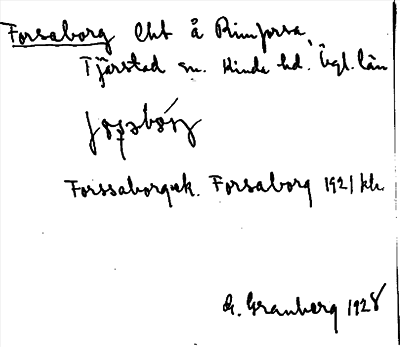 Forsaborg Lht å Rimforsa,
Tjärstad sn. Kinda hd. Ögl. län
Forssaborg ek. Forsaborg 1921 kk.
G. Granberg 1928